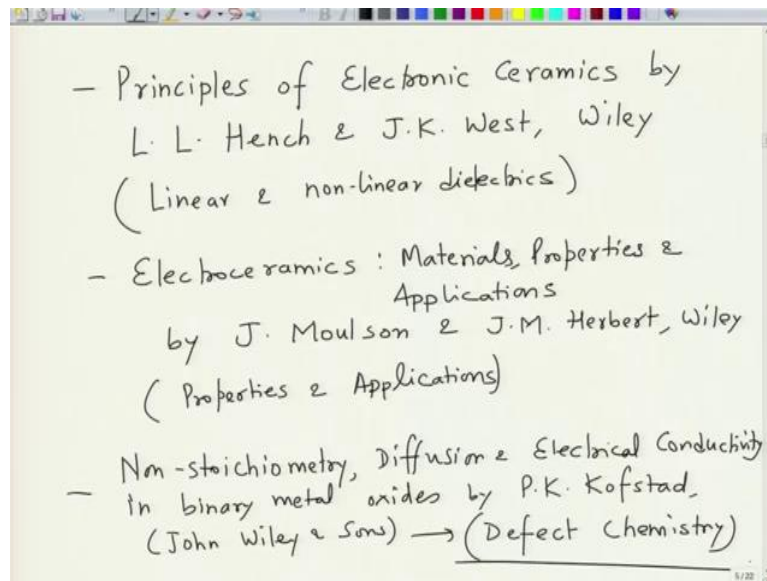 - Principles of Electronic Ceramics by
L. L. Hench & J.K. West, Wiley
(Linear & non-linear dielectrics)
- Electroceramics : Materials, Properties &
Applications
by J. Moulson & J.M. Herbert, Wiley
(Properties & Applications)
Non-stoichiometry, Diffusion & Electrical Conductivity
- in binary metal oxides by P.K. Kofstad,
(John Wiley & Sons) → (Defect Chemistry)
5/22